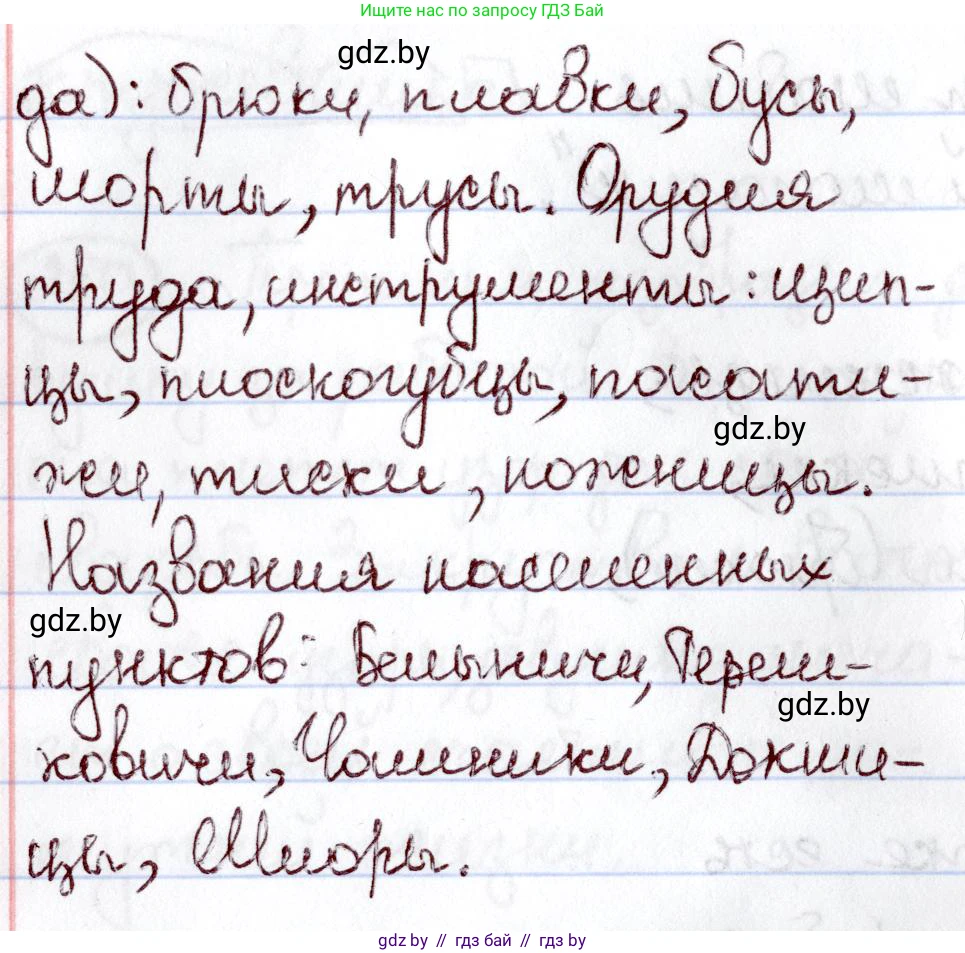 Ищите нас по запросу ГДЗ Бай
gdz.by
да): брюки, плавки, бусы,
шорты, трусы. Орудия
труда, инструменты: щип-
цы, плоскогубцы, пасати-
gdz.by
жи, тиски, ножницы.
Названия населенных
gdz.by
пунктов: Белыничи, Береш-
gdz.by
ковичи, Чашники, Докши-
цы, Миоры.
gdz.by // гдз бай // gdz by